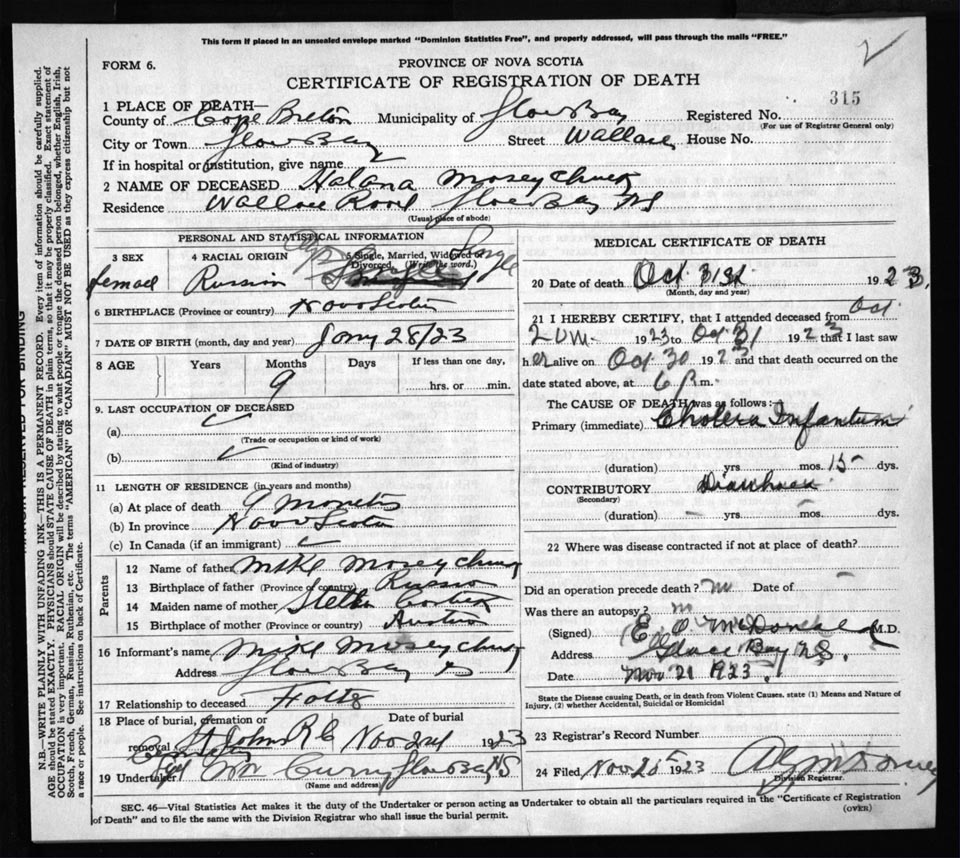 This form if placed in an unsealed envelope marked "Dominion Statistics Free", and properly addressed, will pass through the mails "FREE."
FORM 6.
PROVINCE OF NOVA SCOTIA
CERTIFICATE OF REGISTRATION OF DEATH
315
1 PLACE OF DEATH—
County of Cape Breton Municipality of Glace Bay Registered No.
(For use of Registrar General only)
City or Town Glace Bay Street Wallace House No.
If in hospital or institution, give name
2 NAME OF DECEASED Halana Moseychuck
Residence Wallace Road Glace Bay NS
(Usual place of abode)
PERSONAL AND STATISTICAL INFORMATION
3 SEX 4 RACIAL ORIGIN 5 Single, Married, Widowed or Divorced. (Write the word.)
Single
Femael Russian
6 BIRTHPLACE (Province or country) Nova Scotia
7 DATE OF BIRTH (month, day and year) Jany 28/23
8 AGE Years Months Days If less than one day,
9 hrs. or min.
9. LAST OCCUPATION OF DECEASED
(a)
(Trade or occupation or kind of work)
(b)
(Kind of industry)
11 LENGTH OF RESIDENCE (in years and months)
(a) At place of death 9 Months
(b) In province Nova Scotia
(c) In Canada (if an immigrant)
Parents
12 Name of father Mike Moseychuck
13 Birthplace of father (Province or country) Russia
14 Maiden name of mother Stella
15 Birthplace of mother (Province or country) Austria
16 Informant's name Mike Moseychuck
Address Glace Bay NS
17 Relationship to deceased Father
18 Place of burial, cremation or removal Date of burial
St Johns R C Cemetery Nov 2nd 1923
19 Undertaker Curry Glace Bay NS
(Name and address)
MEDICAL CERTIFICATE OF DEATH
20 Date of death Oct 31st 1923.
(Month, day and year)
21 I HEREBY CERTIFY, that I attended deceased from Oct
1923 to Oct 31 1923 that I last saw
her alive on Oct 30 1923 and that death occurred on the
date stated above, at 6 P.m.
The CAUSE OF DEATH was as follows:
Primary (immediate) Cholera Infantum
(duration) yrs. mos. 15 dys.
CONTRIBUTORY Diarrhoea
(Secondary)
(duration) yrs. mos. dys.
22 Where was disease contracted if not at place of death?
Did an operation precede death? no Date of
Was there an autopsy? no
(Signed) E. O. McDonald M.D.
Address Glace Bay N.S.
Date Nov 21 1923
State the Disease causing Death, or in death from Violent Causes, state (1) Means and Nature of
Injury, (2) whether Accidental, Suicidal or Homicidal
23 Registrar's Record Number
24 Filed Nov 25 1923
Division Registrar.
SEC. 46—Vital Statistics Act makes it the duty of the Undertaker or person acting as Undertaker to obtain all the particulars required in the "Certificate of Registration
of Death" and to file the same with the Division Registrar who shall issue the burial permit.
(OVER)
MARGIN RESERVED FOR BINDING
N.B.—WRITE PLAINLY WITH UNFADING INK—THIS IS A PERMANENT RECORD. Every item of information should be carefully supplied.
AGE should be stated EXACTLY. PHYSICIANS should STATE CAUSE OF DEATH in plain terms, so that it may be properly classified. Exact statement of
OCCUPATION is very important. RACIAL ORIGIN will be described by stating to what people or tongue the deceased person belonged, whether English, Irish,
Scotch, French, German, Russian, Ruthenian, etc. The terms "AMERICAN" OR "CANADIAN" MUST NOT BE USED as they express citizenship but not
a race or people. See instructions on back of Certificate.